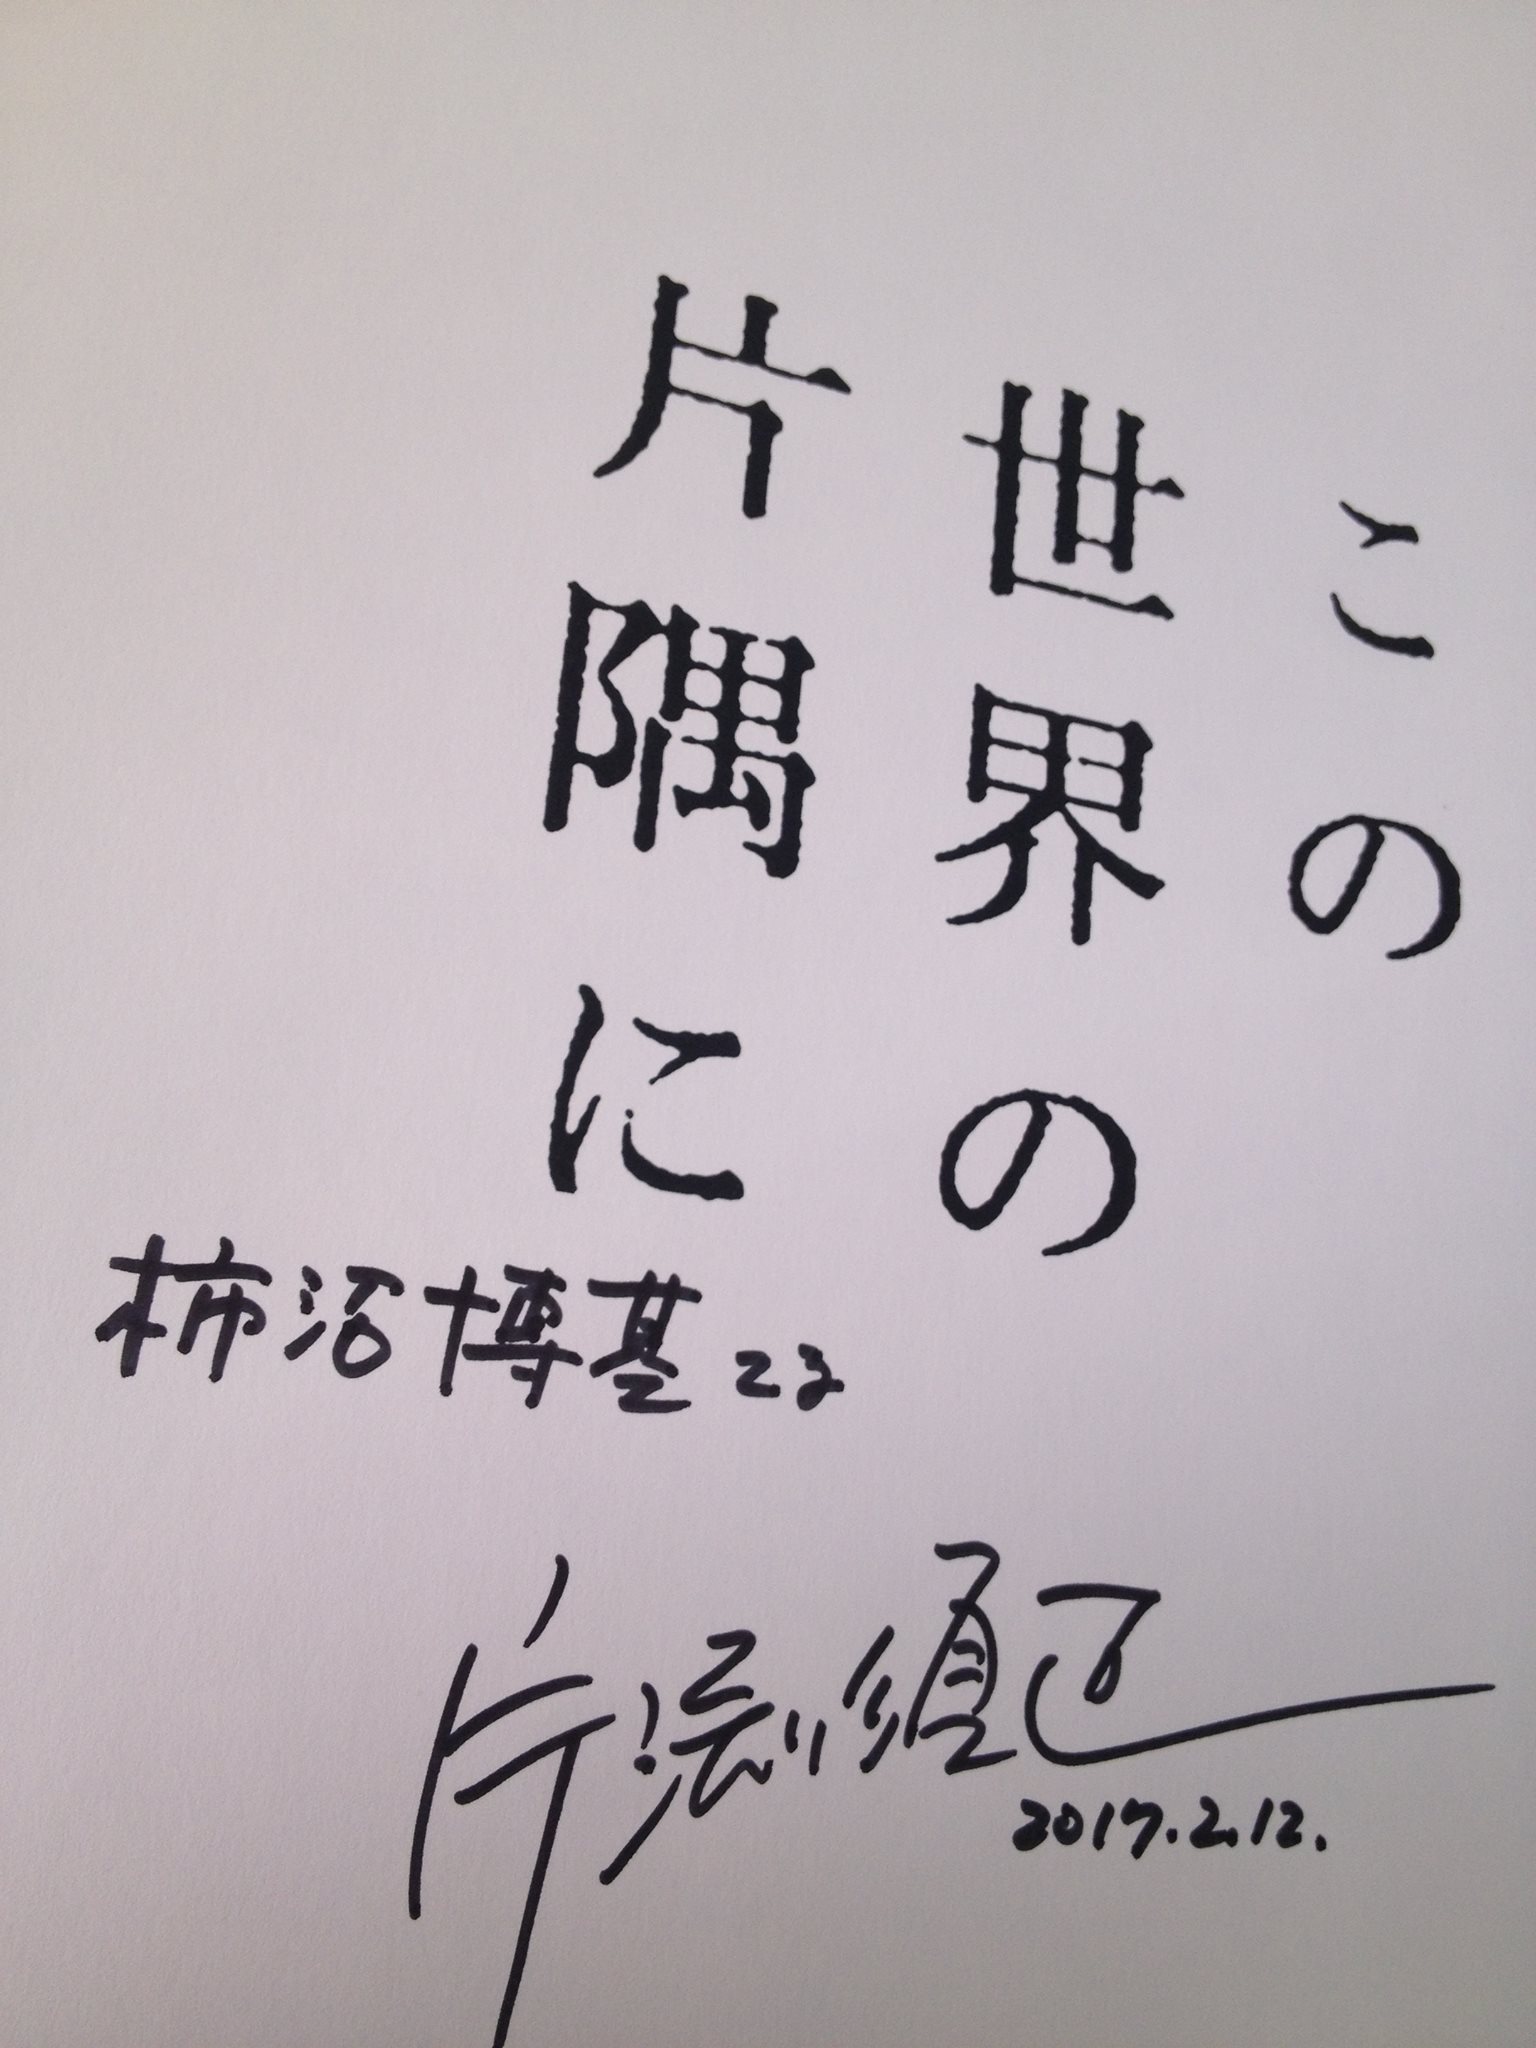 この
世界の
片隅に
柿沼博基さま
片渕須直
2017.2.12.